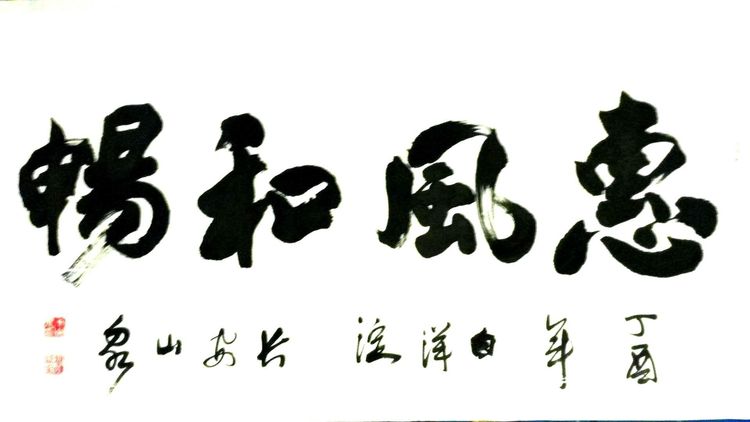 惠風和暢
丁酉年白洋淀長安山泉